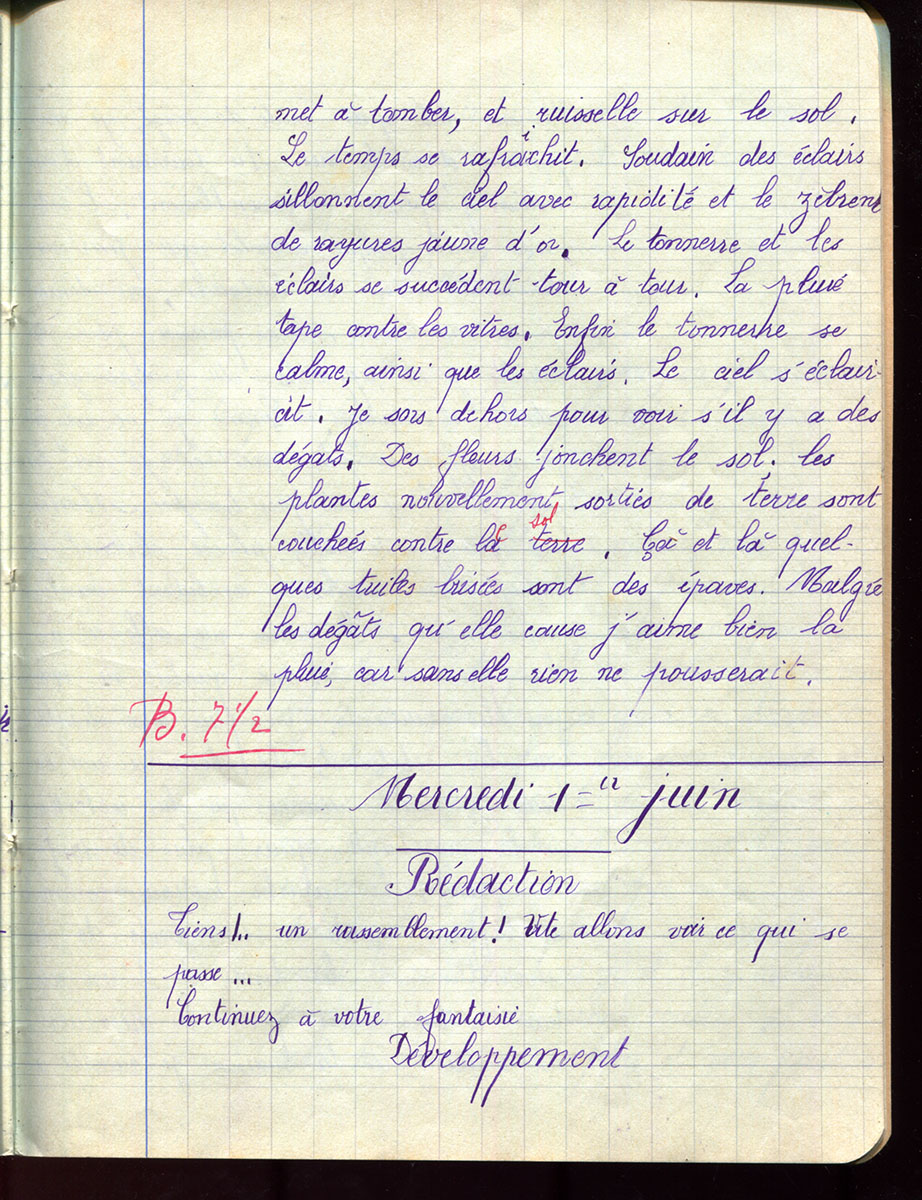 met à tomber, et ruisselle sur le sol.
Le temps se rafraîchit. Soudain des éclairs
sillonnent le ciel avec rapidité et le zèbrent
de rayures jaune d'or. Le tonnerre et les
éclairs se succèdent tour à tour. La pluie
tape contre les vitres. Enfin le tonnerre se
calme, ainsi que les éclairs. Le ciel s'éclair-
cit. Je sors dehors pour voir s'il y a des
dégats. Des fleurs jonchent le sol, les
plantes nouvellement sorties de terre sont
couchées contre le terre sol. Çà et là quel-
ques tuiles brisées sont des épaves. Malgré
les dégâts qu'elle cause j'aime bien la
pluie, car sans elle rien ne pousserait.
B. 7 1/2
Mercredi 1er juin
Rédaction
Tiens!.. un rassemblement! Vite allons voir ce qui se
passe...
Continuez à votre fantaisie
Développement